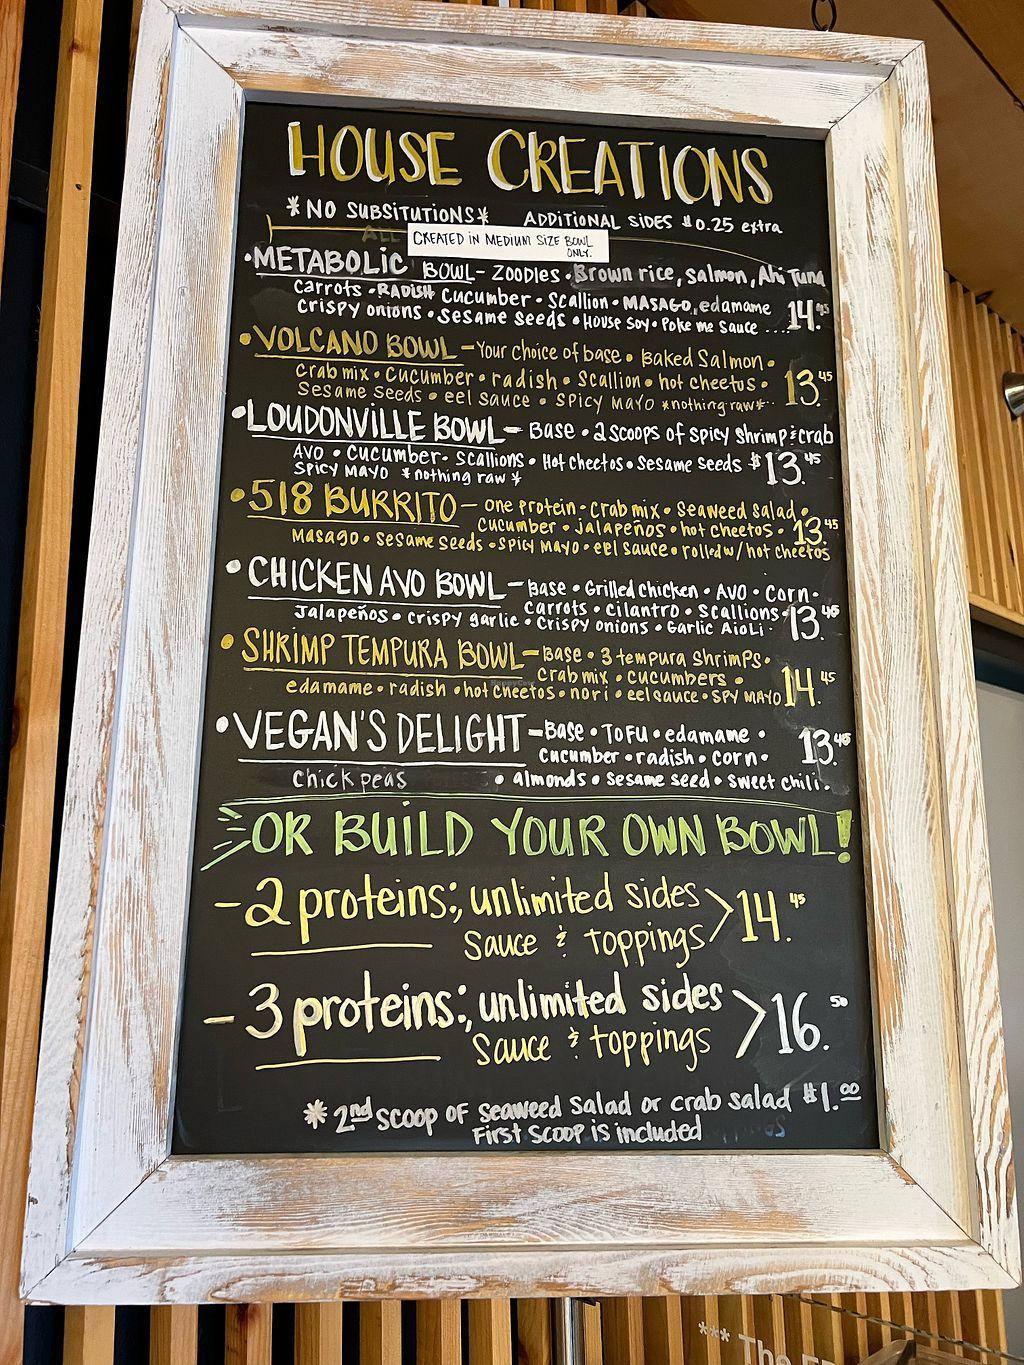 HOUSE CREATIONS
*NO SUBSITUTIONS* ADDITIONAL SIDES $0.25 extra
ALL CREATED IN MEDIUM SIZE BOWL
ONLY.
•METABOLIC BOWL- ZOODLES • Brown rice, salmon, Ahi Tuna
carrots • RADISH cucumber • scallion • MASAGO, edamame
crispy onions • sesame seeds • House soy • Poke me sauce .... 14.95
• VOLCANO BOWL -Your choice of base • Baked Salmon •
crab mix • cucumber • radish • scallion • hot cheetos • 13.45
Sesame seeds • eel sauce • SPICY MAYO *nothing raw*..
•LOUDONVILLE BOWL- Base • 2 scoops of spicy shrimp & crab
AVO • cucumber • scallions • Hot cheetos • sesame seeds $13.45
SPICY MAYO *nothing raw*
•518 BURRITO - one protein • crab mix • seaweed salad •
cucumber • jalapeños • hot cheetos • 13.45
Masago • sesame seeds • spicy mayo • eel sauce • rolled w/ hot cheetos
• CHICKEN AVO BOWL - Base • Grilled chicken • AVO • corn •
carrots • cilantro • scallions
jalapeños • crispy garlic • crispy onions • Garlic Aioli • 13.45
• SHRIMP TEMPURA BOWL - Base • 3 tempura shrimps •
crab mix • cucumbers •
edamame • radish • hot cheetos • nori • eel sauce • SPY MAYO 14.45
•VEGAN'S DELIGHT -Base • TOFU • edamame • 13.45
cucumber • radish • corn •
chickpeas • almonds • sesame seed • sweet chili.
OR BUILD YOUR OWN BOWL!
- 2 proteins:, unlimited sides
sauce & toppings > 14.45
- 3 proteins:, unlimited sides
sauce & toppings > 16.50
* 2nd scoop of seaweed salad or crab salad $1.00
First scoop is included
*** The